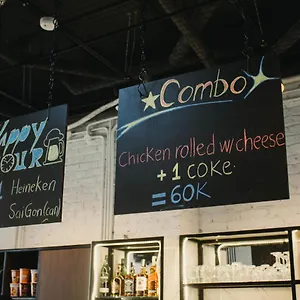 Happy
Hour
Heineken
SaiGon(can)
Combo
Chicken rolled w/cheese
+ 1 coke.
= 60K